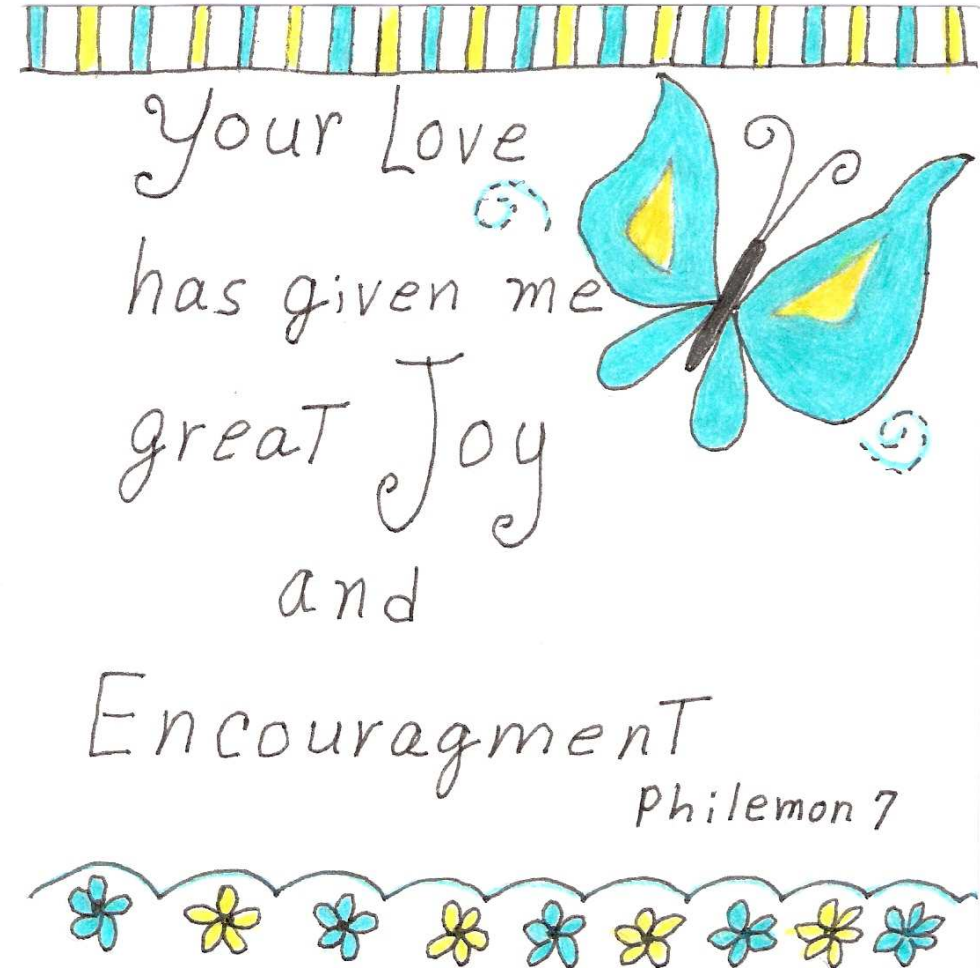 Your Love
has given me
greaT Joy
and
EncouragmenT
Philemon 7